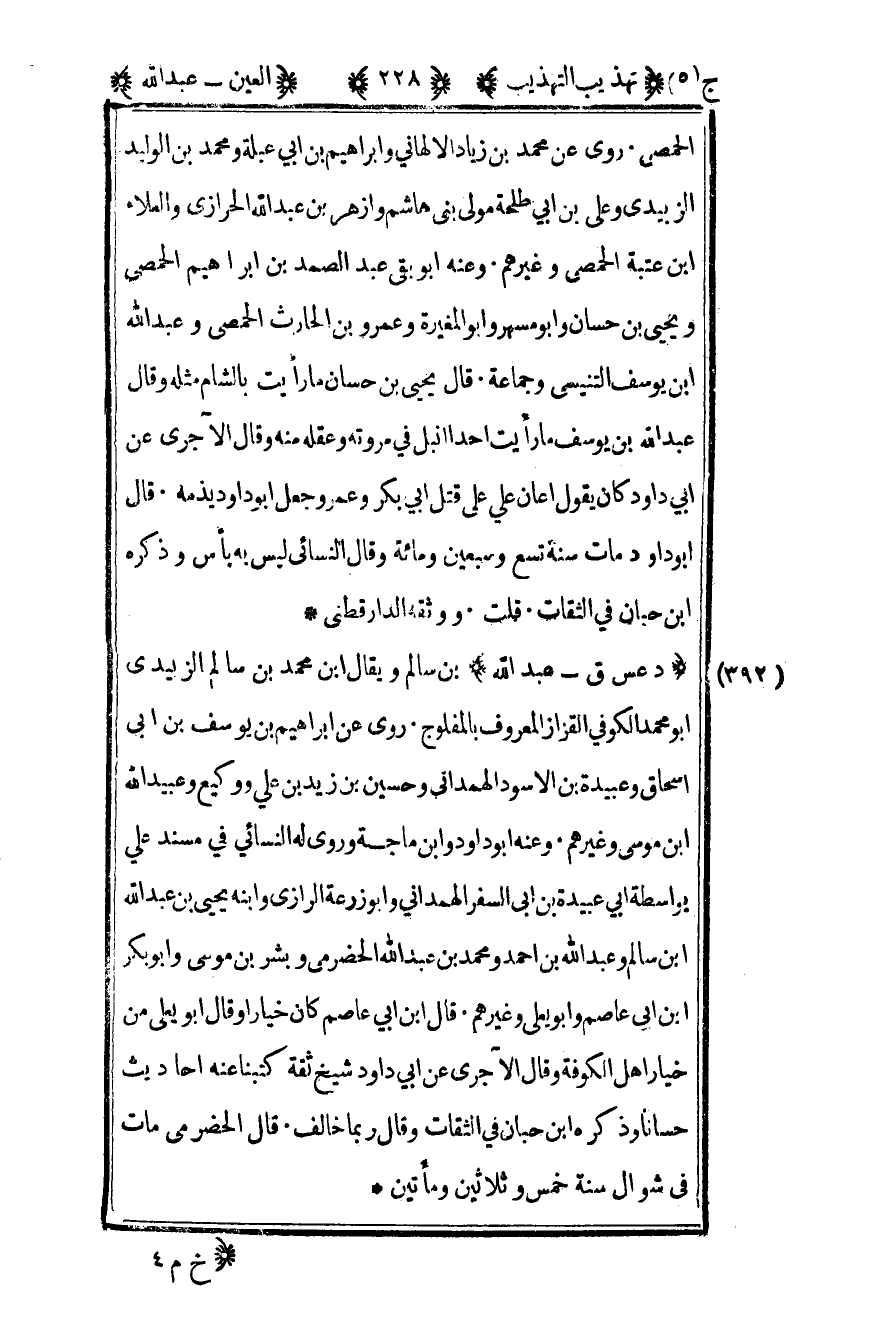 ج(٥) ﴿ تهذيب التهذيب ﴾ ﴿ ٢٢٨ ﴾ ﴿ العين ـ عبدالله ﴾
الحمصى ٠ روى عن محمد بن زياد الالهاني وابراهيم بن ابي عبلة ومحمد بن الوليد
الزبيدى وعلى بن ابي طلحة مولى بنى هاشم وازهر بن عبدالله الحرازى والعلاء
ابن عتبة الحمصى وغيرهم ٠ وعنه ابو بقى عبد الصمد بن ابراهيم الحمصى
ويحيى بن حسان وابو مسهر وابو المغيرة وعمرو بن الحارث الحمصى وعبدالله
ابن يوسف التنيسى وجماعة ٠ قال يحيى بن حسان ما رأيت بالشام مثله وقال
عبدالله بن يوسف ما رأيت احدا انبل في مروته وعقله منه وقال الآجرى عن
ابي داود كان يقول اعان علي على قتل ابي بكر وعمر وجعل ابو داود يذمه ٠ قال
ابو داود مات سنة تسع وسبعين ومائة وقال النسائى ليس به بأس وذكره
ابن حبان في الثقات ٠ قلت ٠ ووثقه الدارقطنى *
﴿ د عس ق ـ عبد الله ﴾ بن سالم ويقال ابن محمد بن سالم الزبيدى (٣٩٢)
ابو محمد الكوفي القزاز المعروف بالمفلوج ٠ روى عن ابراهيم بن يوسف بن ابى
اسحاق وعبيدة بن الاسود الهمدانى وحسين بن زيد بن علي ووكيع وعبيدالله
ابن موسى وغيرهم ٠ وعنه ابو داود وابن ماجة وروى له النسائي في مسند علي
بواسطة ابي عبيدة بن ابى السفر الهمداني وابو زرعة الرازى وابنه يحيى بن عبدالله
ابن سالم وعبدالله بن احمد ومحمد بن عبدالله الحضرمى وبشر بن موسى وابو بكر
ابن ابى عاصم وابو يعلى وغيرهم ٠ قال ابن ابي عاصم كان خيارا وقال ابو يعلى من
خيار اهل الكوفة وقال الآجرى عن ابي داود شيخ ثقة كتبنا عنه احاديث
حسانا وذكره ابن حبان في الثقات وقال ربما خالف ٠ قال الحضرمى مات
فى شوال سنة خمس وثلاثين ومأتين *
﴿ خ م ٤